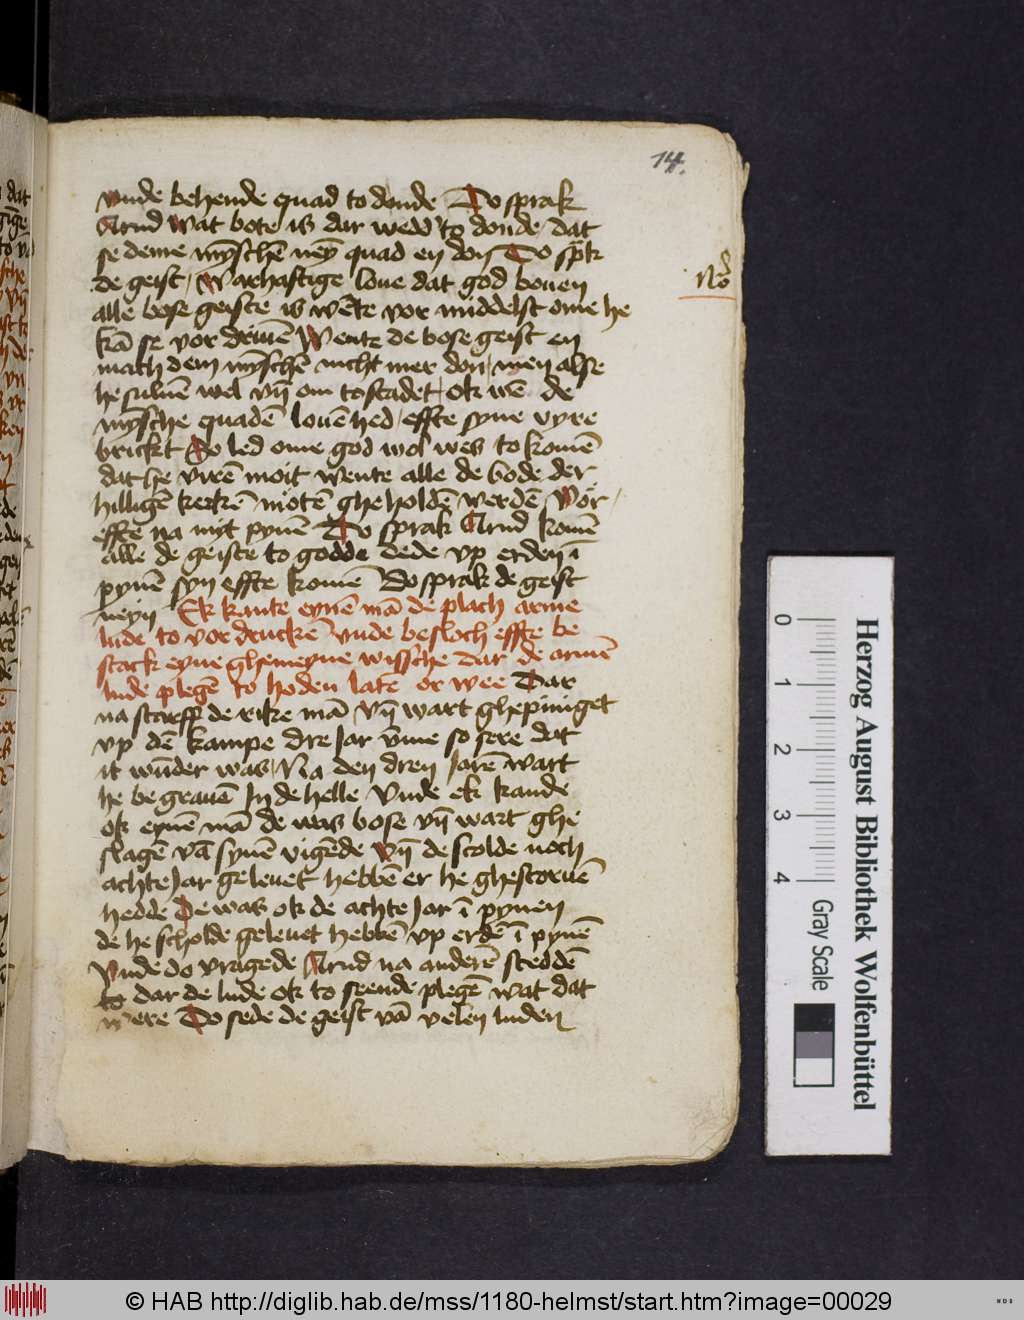 14.
vnde behende quad to donde To sprak
Arnd wat bote is dar wedd' to donde dat
se deme mȳschē neȳ quad en don To spk
de geist / Warhaftige loue dat god bouen
No
alle bose geiste is wēte vor middelst ome he
kā se vor driuē Wente de bose geist en
mach dem mȳschē nicht mer don / men alse
he suluē wel vn̄ om tostadet / ok wē de
mȳsche quadē louēhed / effte syne vyre
brickt So led ome god wol wes to komē
dat he vrrē moit wente alle de bode der
hilligē kerkē motē ghe holdē werdē Vor /
effte na myt pynē To sprak Arnd komē
alle de geiste to godde dede vp erden ī
pynē syn effte komē Do sprak de geist
neyn Ek kante eynē mā de plach arme
lude to vor druckē vnde besloch effte be
stack eyne ghemeyne wissche dar de armē
lude plegē to hoden latē or wee Dar
na starff de rike mā vn̄ wart ghepiniget
vp dē kampe dre Jar vme so sere dat
it wūder was / Na den dren Jarē wart
he be grauē In de helle Vnde ek kande
ok eynē mā de was bose vn̄ wart ghe
slagē vā synē vigēde vn̄ de scolde noch
achte Jar geleuet hebbē er he ghestoruē
hedde De was ok de achte Jar ī pynen
de he scholde geleuet hebbē vp erdē ī pynē
Vnde do vragede Arnd na anderē steddē
to dar de lude ok to seende plegē wat dat
were To sede de geist vā velen luden
Herzog August Bibliothek Wolfenbüttel
0 1 2 3 4
Gray Scale
© HAB http://diglib.hab.de/mss/1180-helmst/start.htm?image=00029